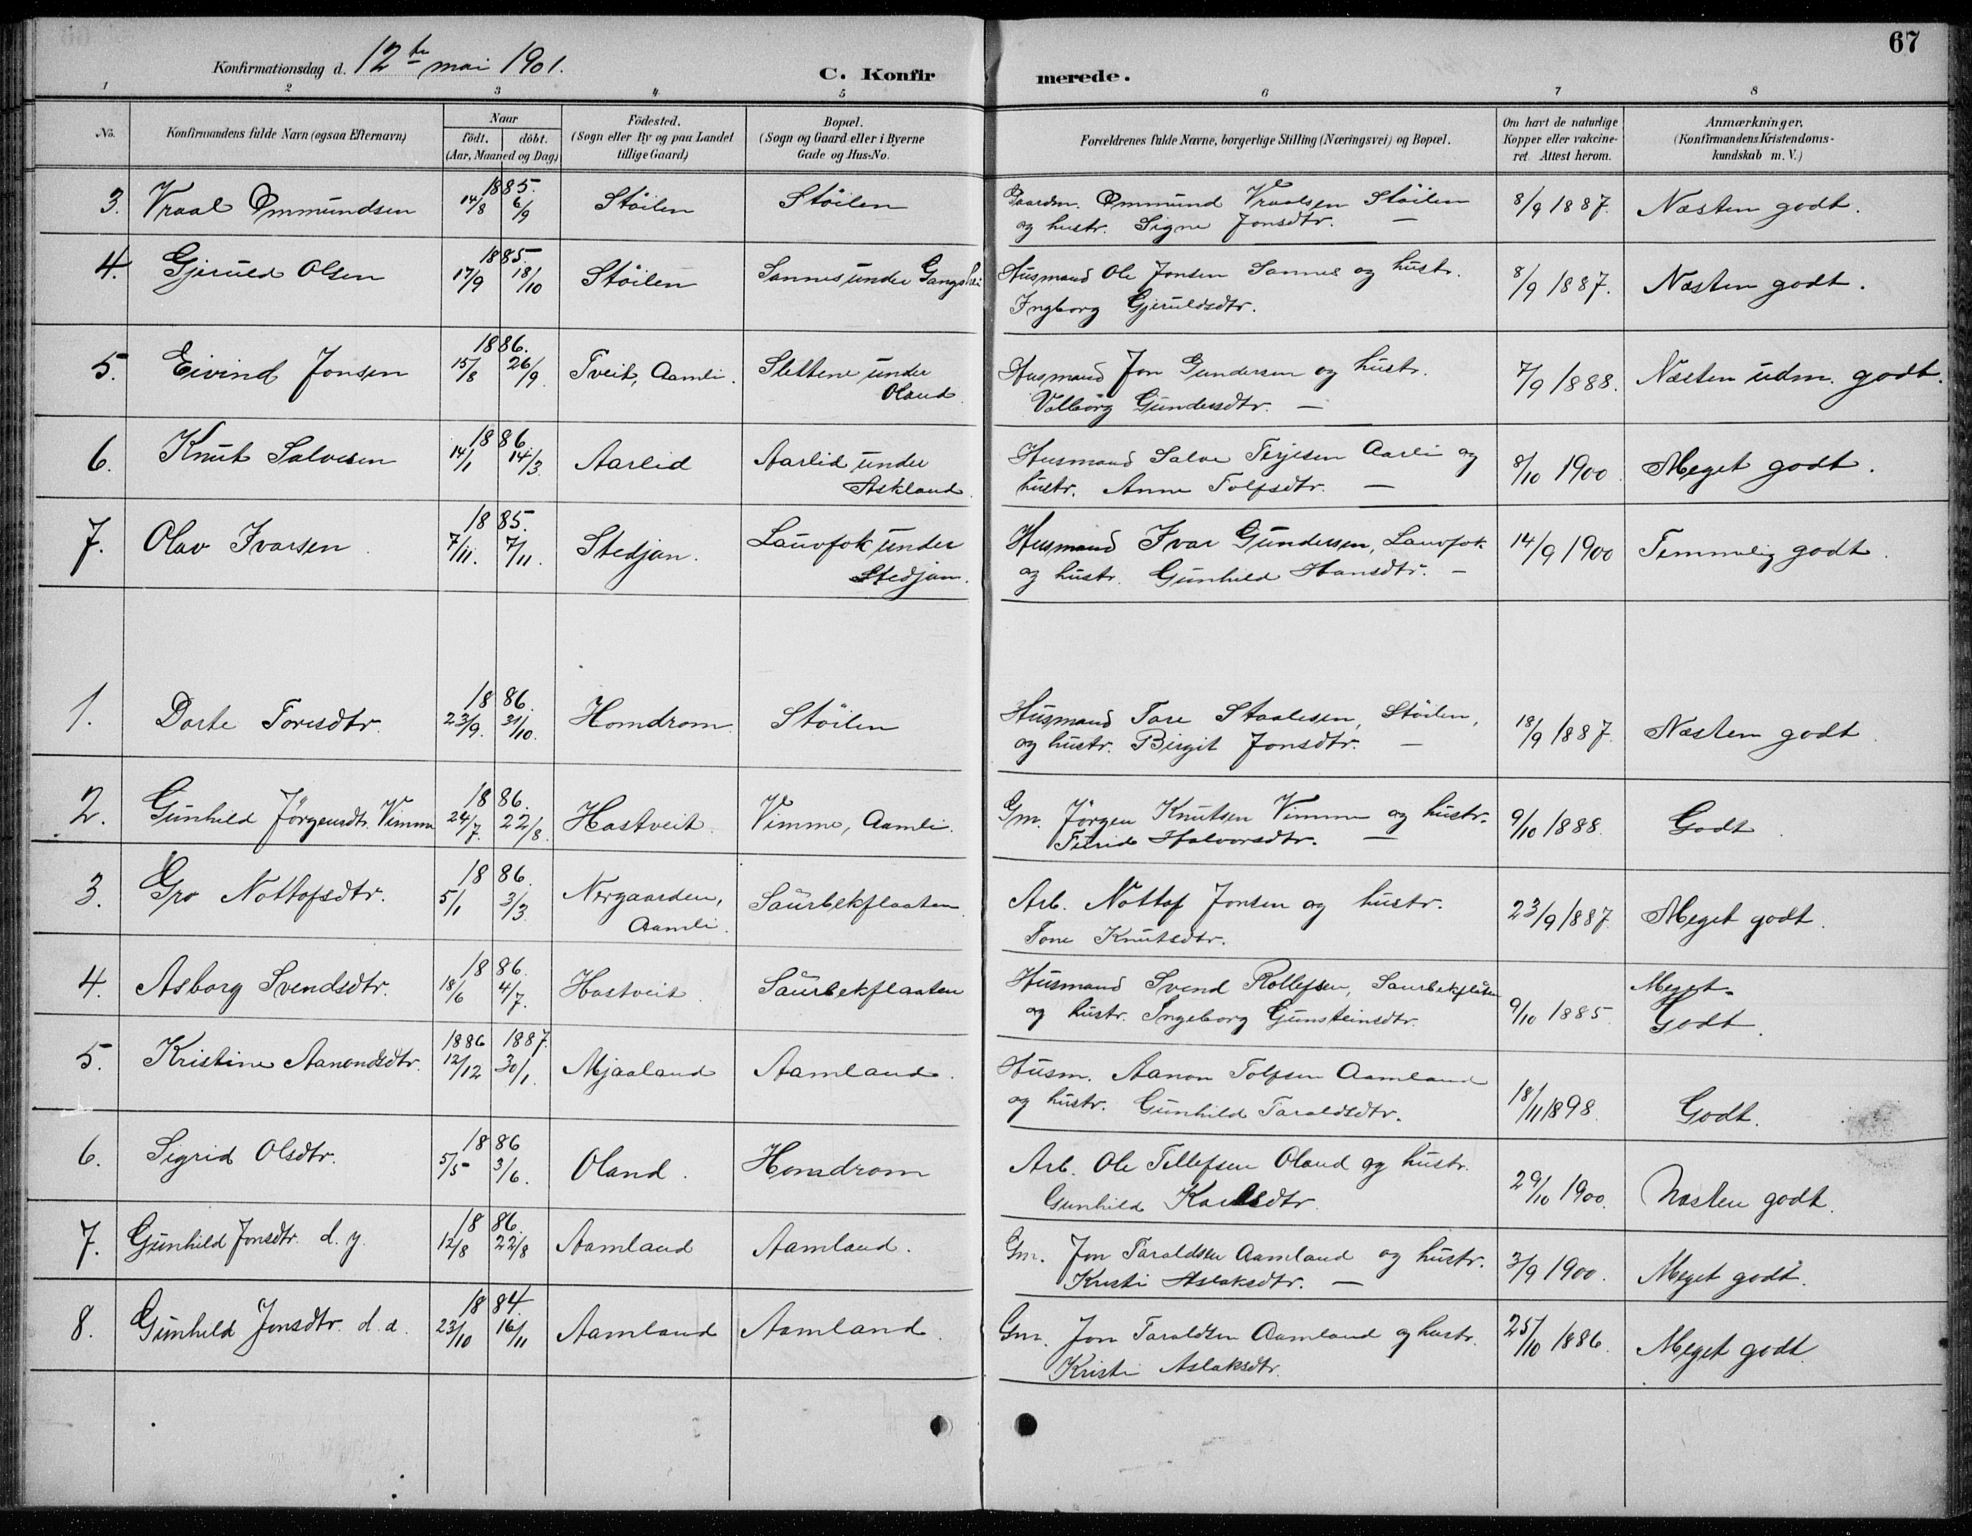 67
Konfirmationsdag d. 12te mai 1901.
C. Konfirmerede.
1 2 3 4 5 6 7 8
No. Konfirmandens fulde Navn (ogsaa Efternavn) Naar født. døbt. (Aar, Maaned og Dag) Fødested. (Sogn eller By og paa Landet tillige Gaard) Bopæl. (Sogn og Gaard eller i Byerne Gade og Hus-No. Forældrenes fulde Navne, borgerlige Stilling (Næringsvei) og Bopæl. Om havt de naturlige Kopper eller vakcineret Attest herom. Anmærkninger, (Konfirmandens Kristendomskundskab m. V.)
3. Vraal Ommundsen 1885. 14/8 6/9 Stöilen Stöilen Gaardm. Ommund Vraalsen Stöilen
og hustr. Signe Jonsdtr. — 8/9 1887. Næsten godt.
4. Gjeruld Olsen 1885. 17/9 18/10 Stöilen Sannes under Gangshei Husmand Ole Jonsen Sannes og hustr.
Ingborg Gjeruldsdtr. 8/9 1887. Næsten godt.
5. Eivind Jonsen 1886. 15/8 26/9 Tveit, Aamli. Slettene under
Oland. Husmand Jon Gundersen og hustr.
Valborg Gundersdtr. — 7/9 1888. Næsten udm. godt.
6. Knut Salvesen 1886. 14/1 14/3 Aarlid Aarlid under
Askland. Husmand Salve Terjesen Aarli og
hustr. Anne Tolfsdtr. — 8/10 1900 Meget godt.
7. Olav Ivarsen 1885. 7/11. 7/11. Stedjan. Lauvfok under
Stedjan. Husmand Ivar Gundersen, Lauvfok
og hustr. Gunhild Hansdtr. — 14/9 1900 Temmelig godt.
1. Dorte Toresdtr. 1886. 23/9. 31/10. Homdrom Stöilen Husmand Tore Staalesen, Stöilen,
og hustr. Birgit Jonsdtr. — 18/9 1887 Næsten godt
2. Gunhild Jörgensdtr. Vimme 1886. 24/7. 22/8. Hastveit. Vimme, Aamli. Gm. Jörgen Knutsen Vimme og hustr.
Turid Halvorsdtr. — 9/10 1888. Godt.
3. Gro Nottofsdtr. 1886. 5/1 3/3. Nergaarden,
Aamli. Saurbekflaaten. Arb. Nottof Jonsen og hustr.
Tone Knutsdtr. 23/9 1887. Meget godt.
4. Asborg Svendsdtr. 1886. 18/6 4/7. Hastveit. Saurbekflaaten Husmand Svend Rollefsen, Saurbekflaten
og hustr. Ingeborg Gunsteinsdtr. 9/10 1885. Meget
Godt.
5. Kristine Aanondsdtr. 1886 1887. 12/12 30/1. Mjaaland Aamland. Husm. Aanon Tolfsen Aamland
og hustr. Gunhild Taraldsdtr. 18/11 1898. Godt.
6. Sigrid Olsdtr. 1886 5/5 3/6. Oland. Homdrom Arb. Ole Tellefsen Oland og hustr.
Gunhild Karlsdtr. 29/10 1900. Næsten godt.
7. Gunhild Jonsdtr. d. y. 1886. 12/8 22/8 Aamland Aamland. Gm. Jon Taraldsen Aamland og hustr.
Kristi Aslaksdtr. — 3/9 1900. Meget godt.
8. Gunhild Jonsdtr. d. æ. 1884. 23/10 16/11 Aamland Aamland. Gm. Jon Taraldsen Aamland og hustr.
Kristi Aslaksdtr. 25/10 1886. Meget godt.